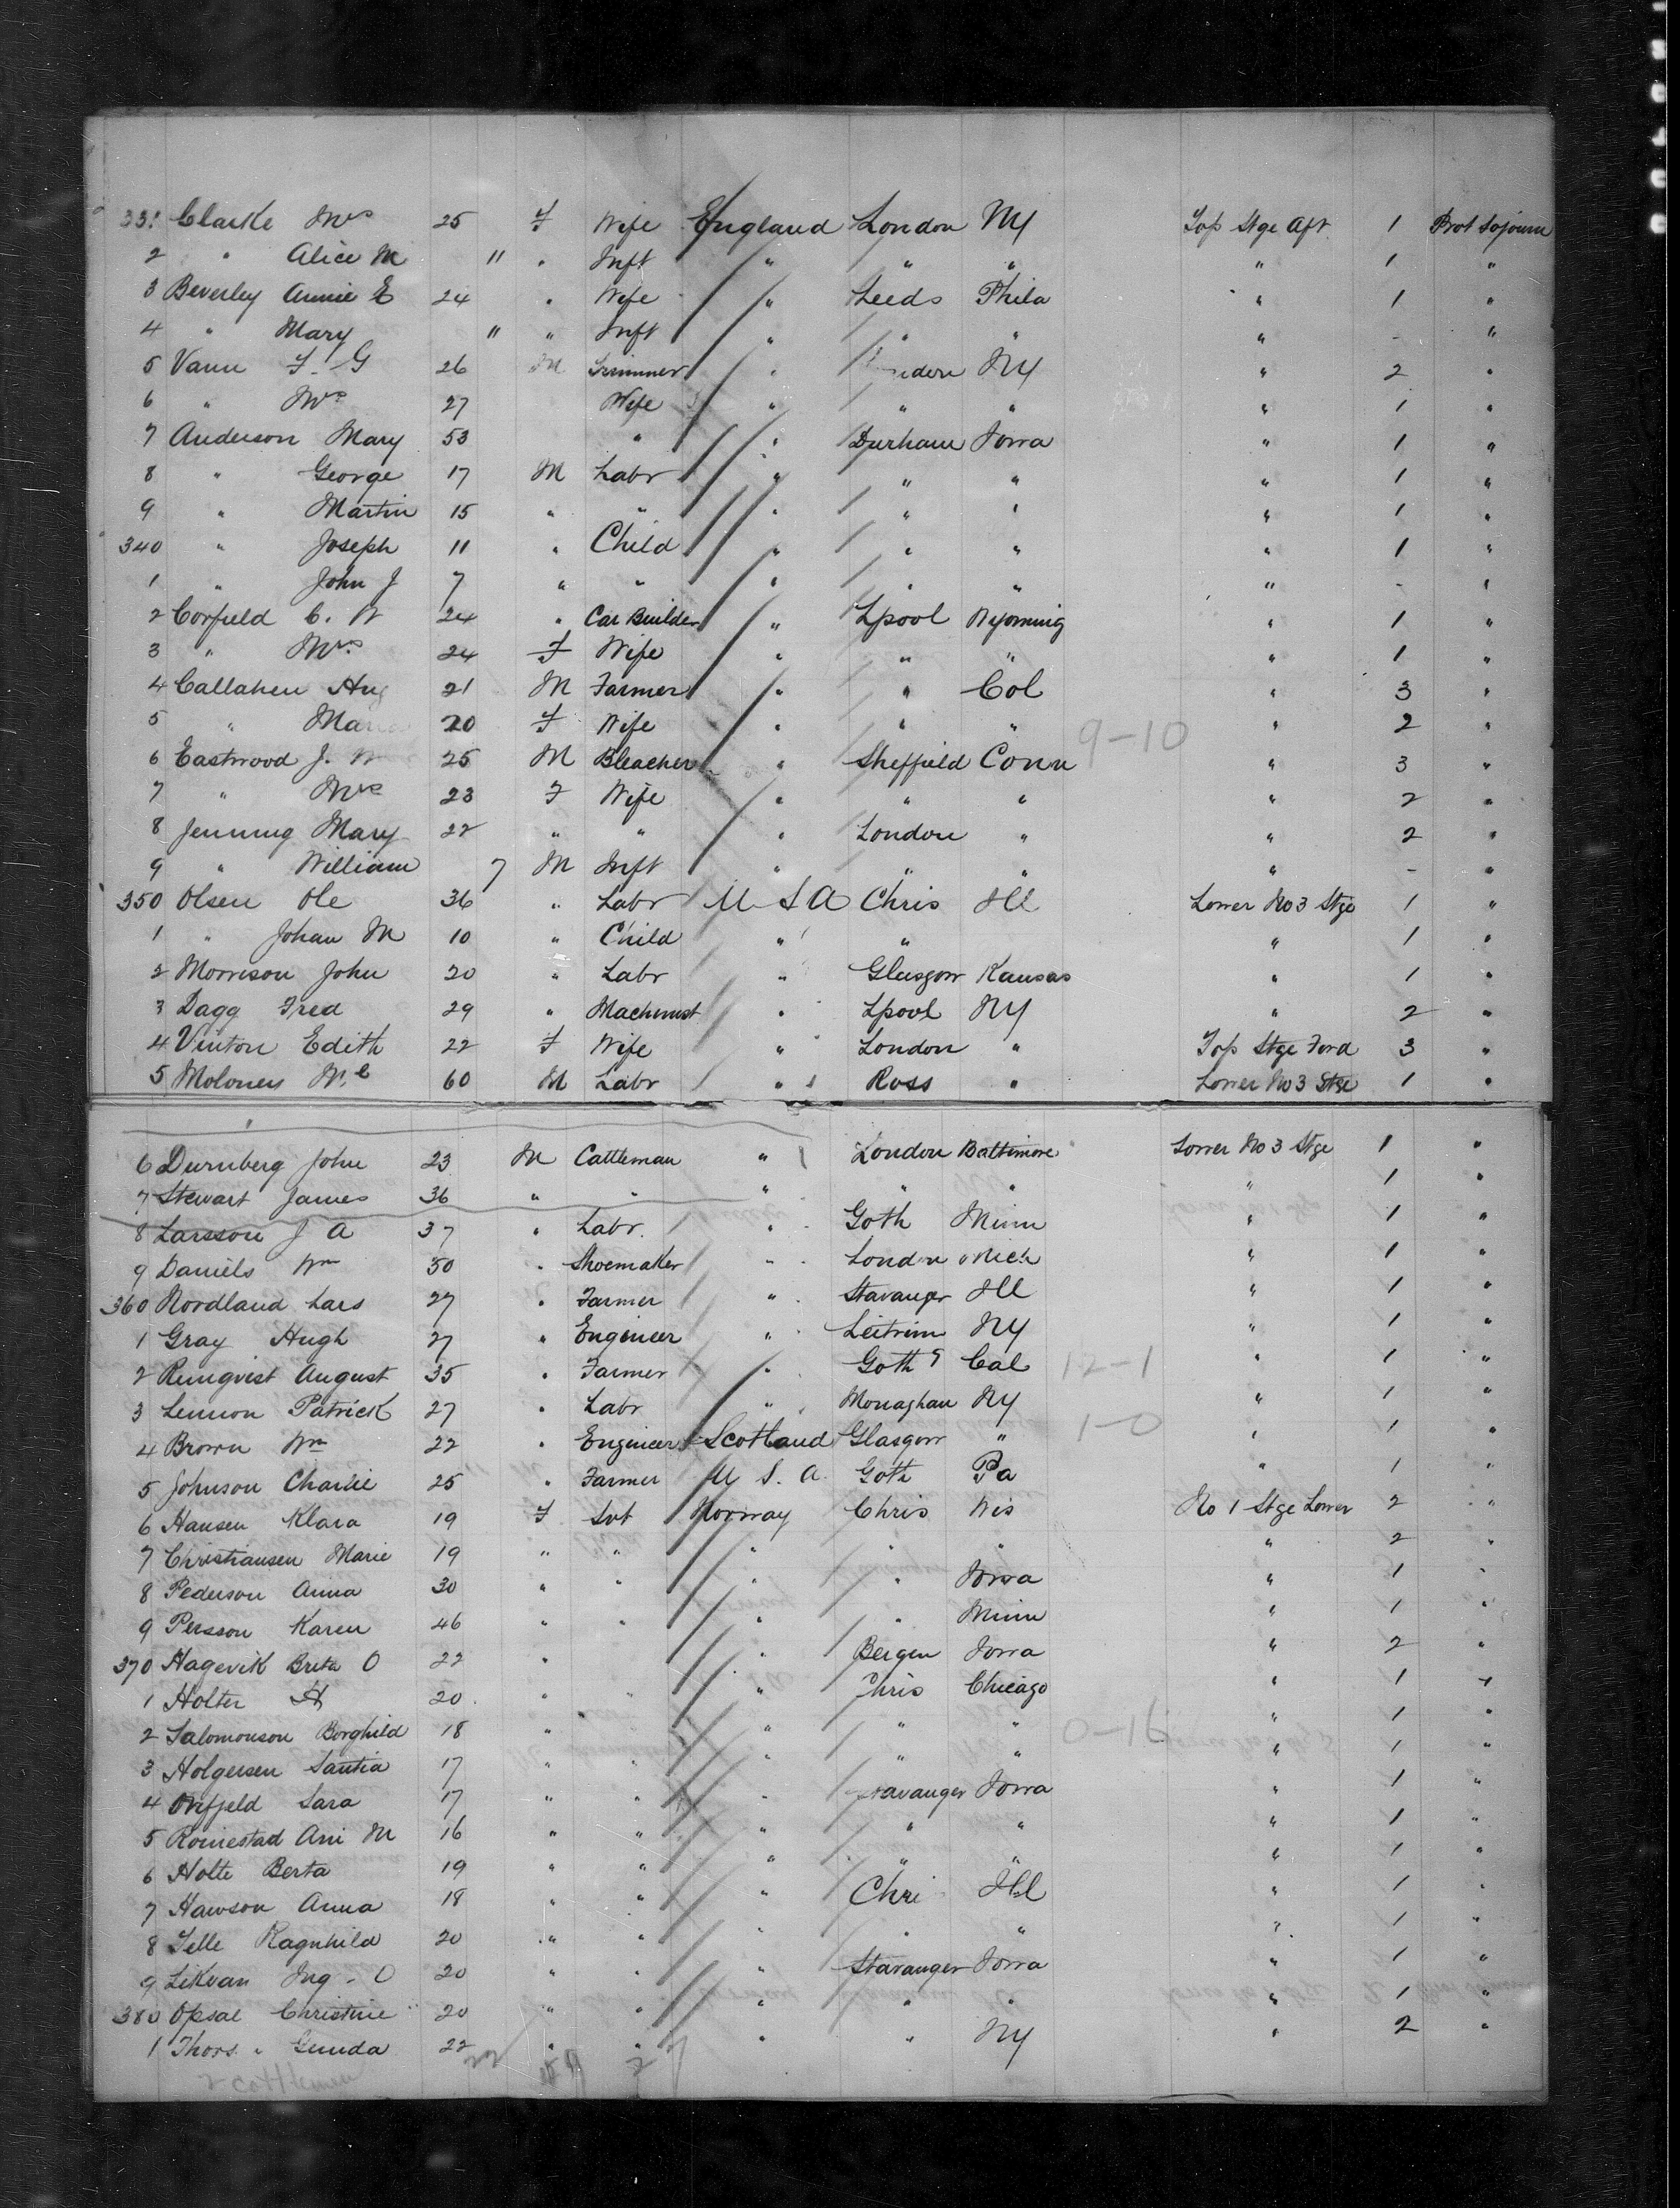 331 Clarke Mrs 25 F Wife England London NY Top Stge Aft 1 Prot Sojourn
2 " Alice M 11 " Inft " " " " 1 "
3 Beverley Annie E 24 " Wife " Leeds Phila " 1 "
4 " Mary 11 " Inft " " " " - "
5 Vann F. G 26 M Trimmer " London NY " 2 "
6 " Mrs 27 Wife " " " " 1 "
7 Anderson Mary 53 " " Durham Iowa " 1 "
8 " George 17 M Labr " " " " 1 "
9 " Martin 15 " " " " " " 1 "
340 " Joseph 11 " Child " " " " 1 "
1 " John J 7 " " " " " " - "
2 Corfield C. W 24 " Car Builder " Lpool Wyoming " 1 "
3 " Mrs 24 F Wife " " " " 1 "
4 Callahen Aug 21 M Farmer " " Col " 3 "
5 " Maria 20 F Wife " " " 9-10 " 2 "
6 Eastwood J. W 25 M Bleacher " Sheffield Conn " 3 "
7 " Mrs 23 F Wife " " " " 2 "
8 Jenning Mary 22 " " " London " " 2 "
9 " William 7 M Inft " " " " - "
350 Olsen Ole 36 " Labr U S A Chris Ill Lower No 3 Stge 1 "
1 " Johan M 10 " Child " " " 1 "
2 Morrison John 20 " Labr " Glasgow Kansas " 1 "
3 Dagg Fred 29 " Machinist " Lpool NY " 2 "
4 Vinton Edith 22 F Wife " London " Top Stge Ford 3 "
5 Moloney 60 M Labr " Ross " Lower No 3 Stge 1 "
6 Durnberg John 23 M Cattleman " London Baltimore Lower No 3 Stge 1 "
7 Stewart James 36 " " " " " " 1 "
8 Larsson J A 37 " Labr. " Goth Minn " 1 "
9 Daniels Wm 50 " Shoemaker " London Mich " 1 "
360 Nordland Lars 27 " Farmer " Stavanger Ill " 1 "
1 Gray Hugh 27 " Engineer " Leitrim NY " 1 "
2 Runqvist August 35 " Farmer " Goth Cal 12-1 " 1 "
3 Lennon Patrick 27 " Labr " Monaghan NY " 1 "
4 Brown Wm 22 " Engineer Scotland Glasgow " 1-0 " 1 "
5 Johnson Charlie 25 " Farmer U S. A. Goth Pa " 1 "
6 Hansen Klara 19 F Svt Norway Chris Wis No 1 Stge Lower 2 "
7 Christiansen Marie 19 " " " " " " 2 "
8 Pederson Anna 30 " " " " Iowa " 1 "
9 Persson Karen 46 " " " " Minn " 1 "
370 Hagevik Breta O 22 " " Bergen Iowa " 2 "
1 Holter A 20 " " " Chris Chicago " 1 "
2 Salomonson Borghild 18 " " " " 0-16 " 1 "
3 Holgersen Santia 17 " " " " " " 1 "
4 Sara 17 " " " Stavanger Iowa " 1 "
5 Roinestad Ani M 16 " " " " " " 1 "
6 Holte Berta 19 " " " " " " 1 "
7 Hawson Anna 18 " " " Chri Ill " 1 "
8 Telle Ragnhild 20 " " " " " " 1 "
9 Likvan Ing. O 20 " " " Stavanger Iowa " 1 "
380 Opsal Christine 20 " " " " " " 1 "
1 Thors. Gunda 22 " " " " NY " 2 "
2 Cattlemen